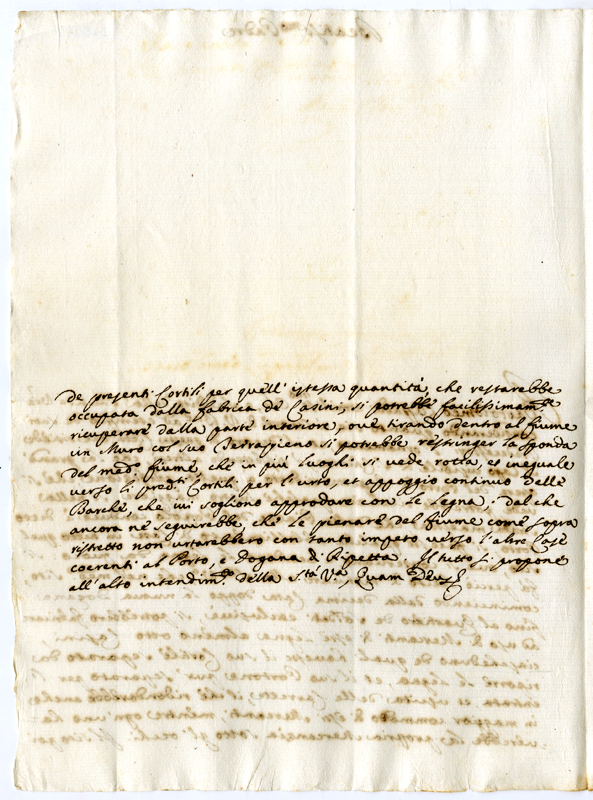 de presenti Cortili per quell' istessa quantità, che restarebbe
occupata dalla fabrica de Casini, si potrebbe facilissimam.te
ricuperare dalla parte interiore, ove tirando dentro al fiume
un Muro col suo Terrapieno si potrebbe restringer la sponda
del med.o fiume, che in più luoghi si vede rotta, et inequale
verso li pred.ti Cortili per l'urto, et appoggio continuo delle
Barche, che ivi sogliono approdare con le Legna; dal che
ancora ne seguirebbe, che le pienare del fiume come sopra
ristretto non urtarebbero con tanto impeto verso l'altre Case
coerenti al Porto, e Dogana di Ripetta. Il tutto si propone
all'alto intendim.to della S.tà V.ra, Quam Deus